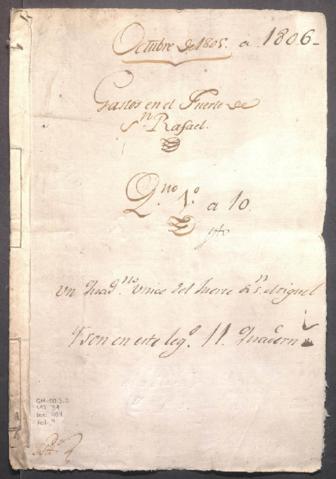 Octubre de 1805. a 1806-
Gastos en el Fuerte de
Sn Rafael.
Qno 1º a 10
un Quadno unico del fuerte de Sn Miguel
Y son en este lego 11 Quadern